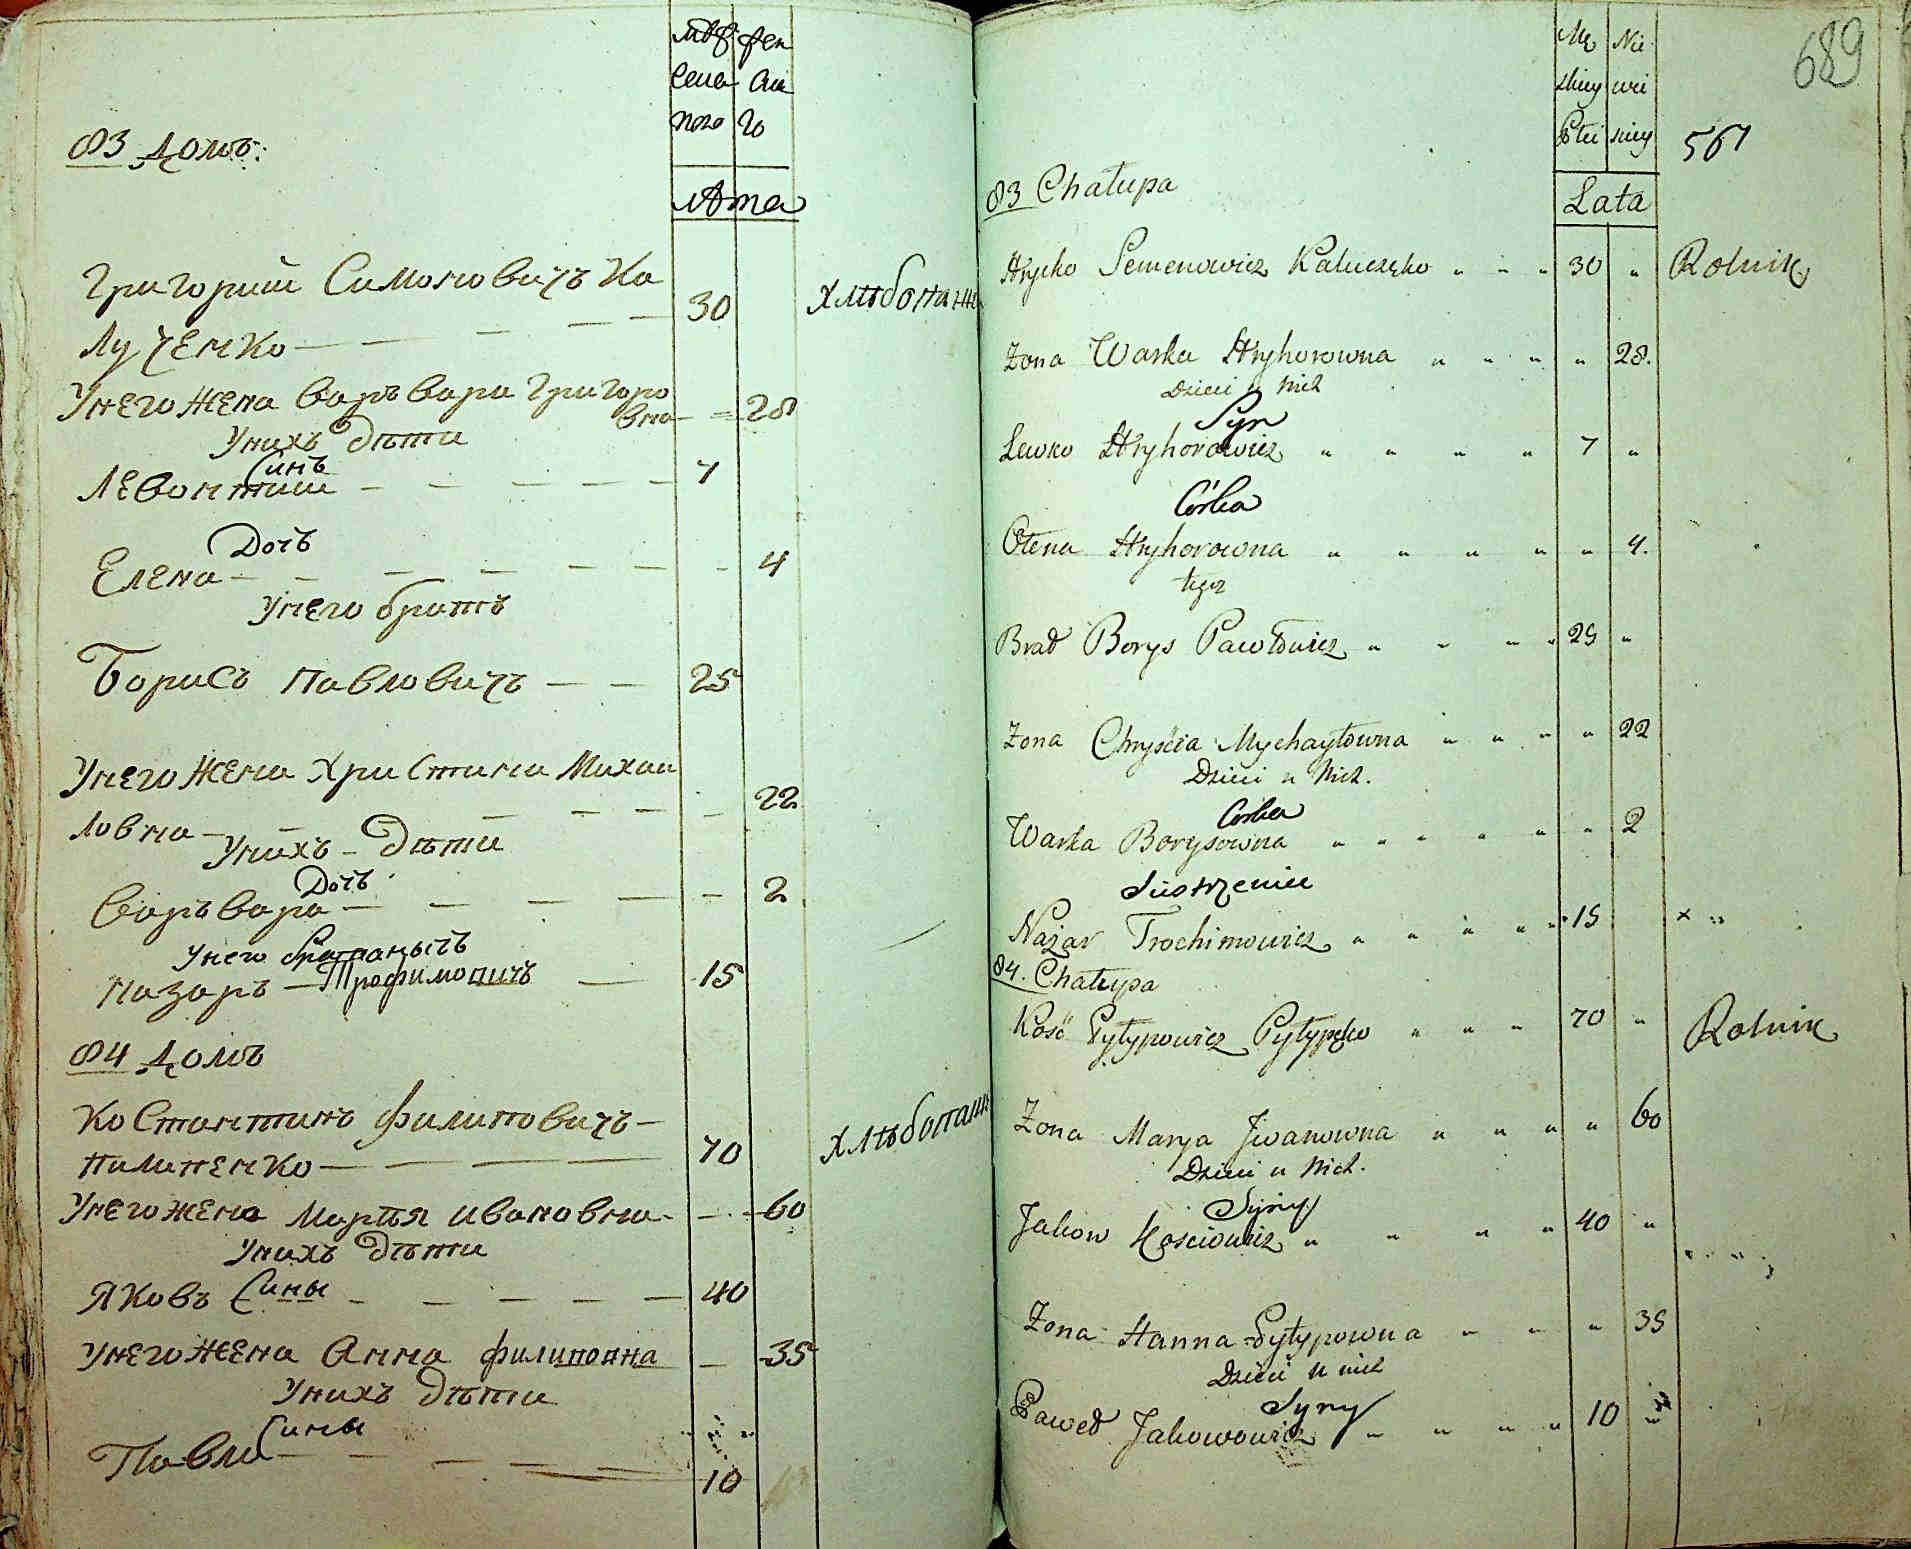 83 Домъ:
Лѣта
Григорий Симоновичъ Ка
лученко — — — — 30
хлѣбопаш
Унего жена Варъвара Григоро
вна — = 28
Унихъ Дѣти
Синъ
Левонтии — — — — — 7
Дочъ
Елена — — — — — — - 4
Унего братъ
Борисъ Павловичъ — — 25
Унего жена Христина Михаи
ловна — — — — — — 22
Унихъ - Дѣти
Дочъ
Варъвара — — — — — 2
Унего братанычъ
Назаръ — Трофимовичъ — 15
84 Домъ
Костантинъ Филиповичъ —
Пилипенко — — — — 70
хлѣбопаш
Унего жена Мария Ивановна — — 60
Унихъ Дѣти
Сины
Яковъ — — — — — 40
Унего жена Анна Филиповна — 35
Унихъ Дѣти
Сины
Павли — — — — — 10
689
561
83 Chałupa
Lata
Hryćko Semenowicz Kałuczęko „ „ „ 30 „ Rolnik
Zona Warka Hryhorowna „ „ „ „ 28.
Dzieci u Nich
Syn
Lewko Hryhorowicz „ „ „ „ 7 „
Córka
Ołena Hryhorowna „ „ „ „ „ 4.
tegoż
Brad Borys Pawłowicz „ „ „ „ 25 „
Zona Chryścia Mychayłowna „ „ „ „ 22
Dzieci u Nich.
Corka
Warka Borysowna „ „ „ „ „ „ 2
Siostrzeniec
Nazar Trochimowicz „ „ „ „ „ 15
84. Chałupa
Kość Pyłypowicz Pyłypęko „ „ „ 70 „ Rolnik
Zona Marya Jwanowna „ „ „ „ 60
Dzieci u Nich.
Syny
Jakow Kosciowicz „ „ „ „ 40 „
Zona Hanna Pyłypowna „ „ „ 35
Dzieci u nich
Syny
Paweł Jakowowicz „ „ „ „ 10 „